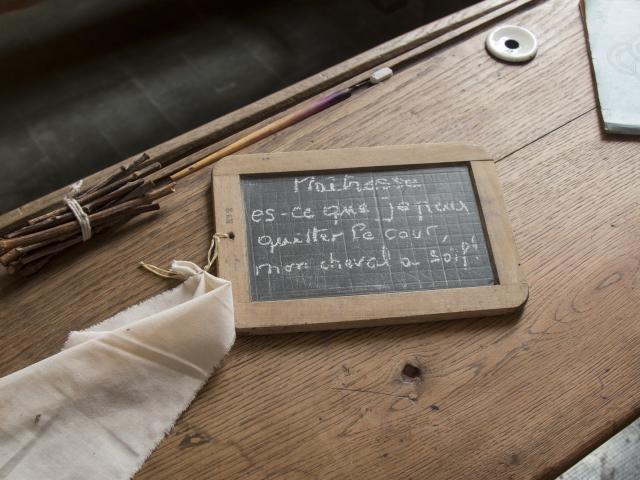 Maîtresse
es-ce que je peux
quitter le cour,
mon cheval a soif!